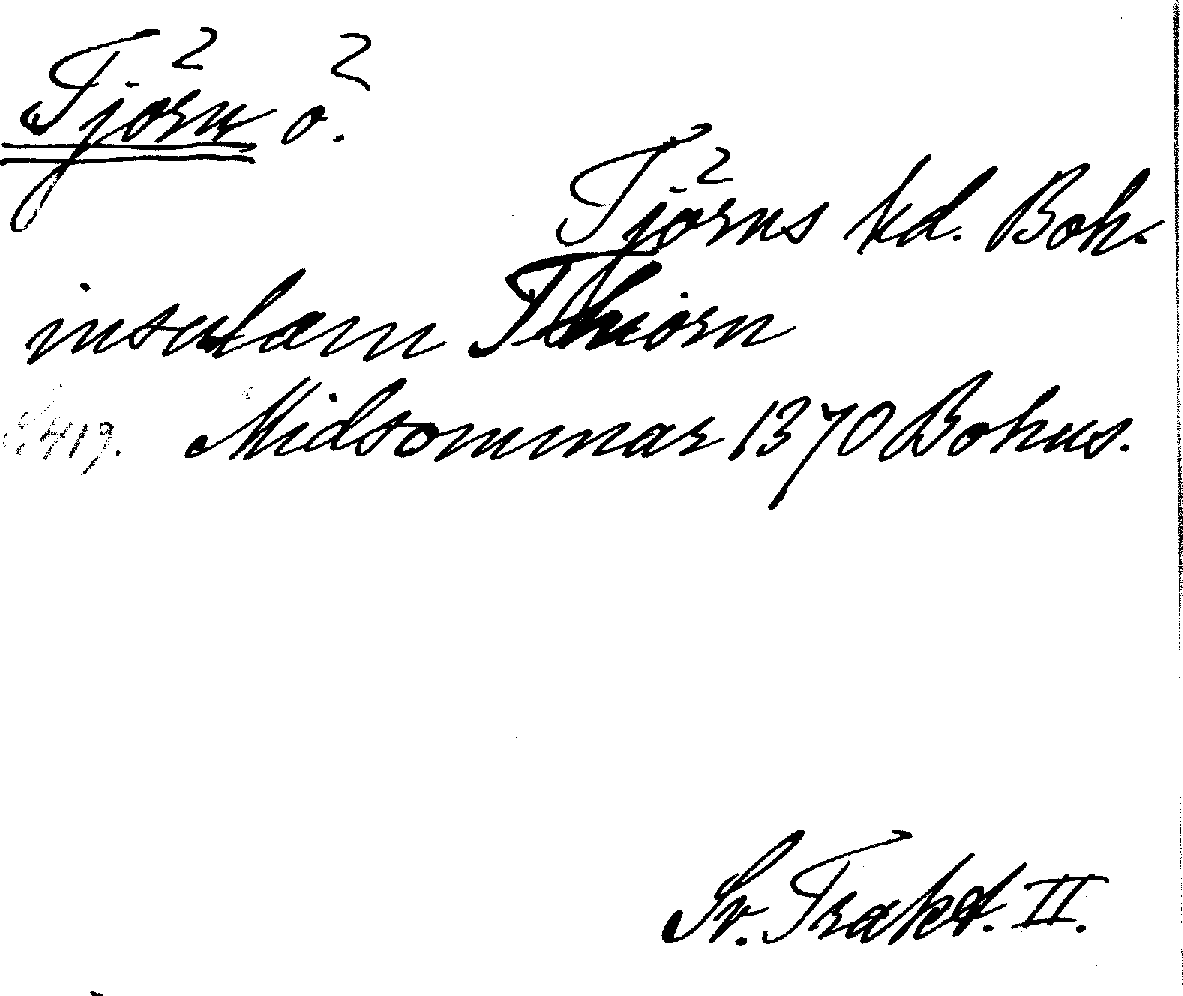 Tjörn ö.
Tjörns hd. Boh.
insulam Thiorn
S 419. Midsommar 1370 Bohus.
Sv. Trakt. II.